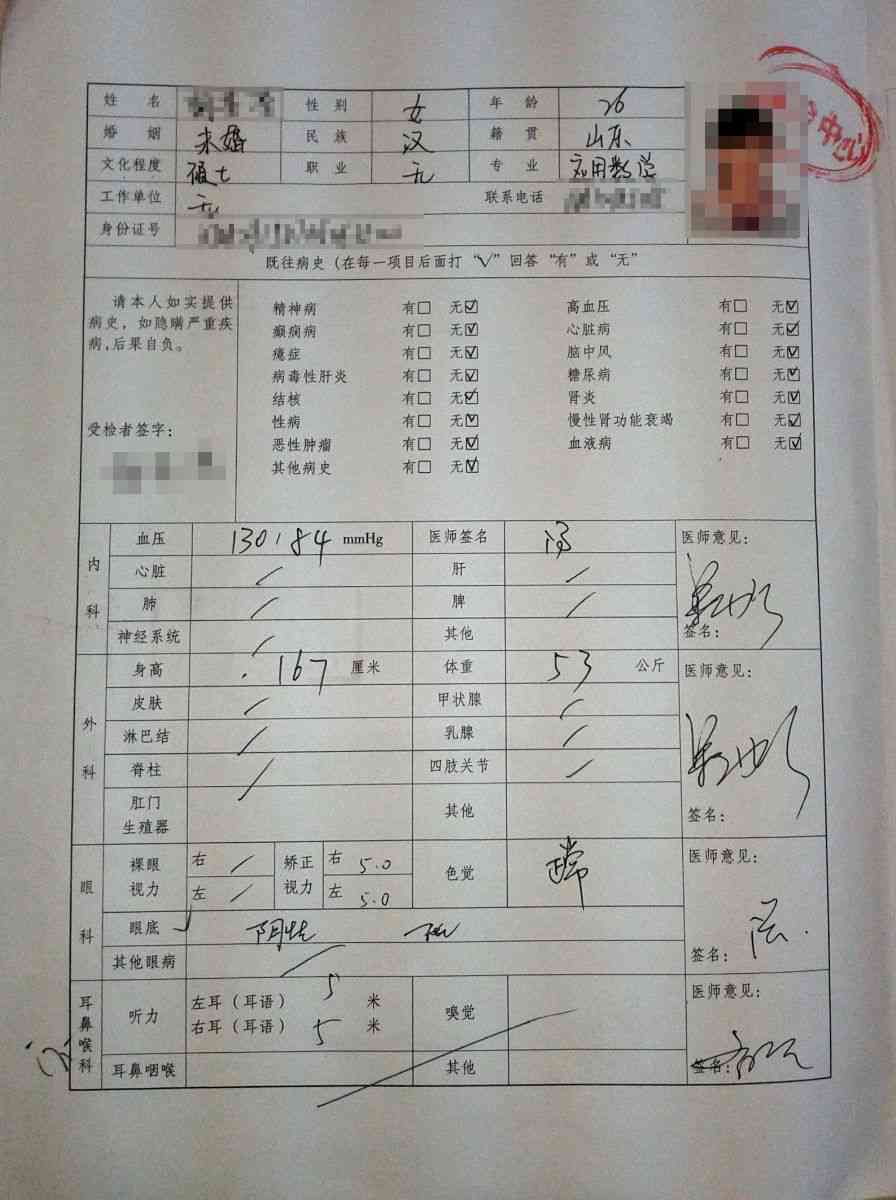 中心
姓名 性别 女 年龄 26
婚姻 未婚 民族 汉 籍贯 山东
文化程度 硕士 职业 无 专业 应用数学
工作单位 无 联系电话
身份证号
既往病史(在每一项目后面打“√”回答“有”或“无”
请本人如实提供
病史,如隐瞒严重疾
病,后果自负。
受检者签字:
精神病 有□ 无☑ 高血压 有□ 无☑
癫痫病 有□ 无☑ 心脏病 有□ 无☑
癔症 有□ 无☑ 脑中风 有□ 无☑
病毒性肝炎 有□ 无☑ 糖尿病 有□ 无☑
结核 有□ 无☑ 肾炎 有□ 无☑
性病 有□ 无☑ 慢性肾功能衰竭 有□ 无☑
恶性肿瘤 有□ 无☑ 血液病 有□ 无☑
其他病史 有□ 无☑
内科
血压 130/84 mmHg 医师签名 医师意见:
心脏 / 肝 /
肺 / 脾 /
神经系统 / 其他 签名:
外科
身高 167 厘米 体重 53 公斤 医师意见:
皮肤 / 甲状腺 /
淋巴结 / 乳腺 /
脊柱 / 四肢关节 /
肛门
生殖器 其他 签名:
眼科
裸眼视力 右 / 左 / 矫正视力 右 5.0 左 5.0 色觉 正常 医师意见:
眼底 阴性
其他眼病 / 签名:
耳鼻喉科
听力 左耳(耳语) 5 米 嗅觉 医师意见:
右耳(耳语) 5 米
耳鼻咽喉 其他 签名: